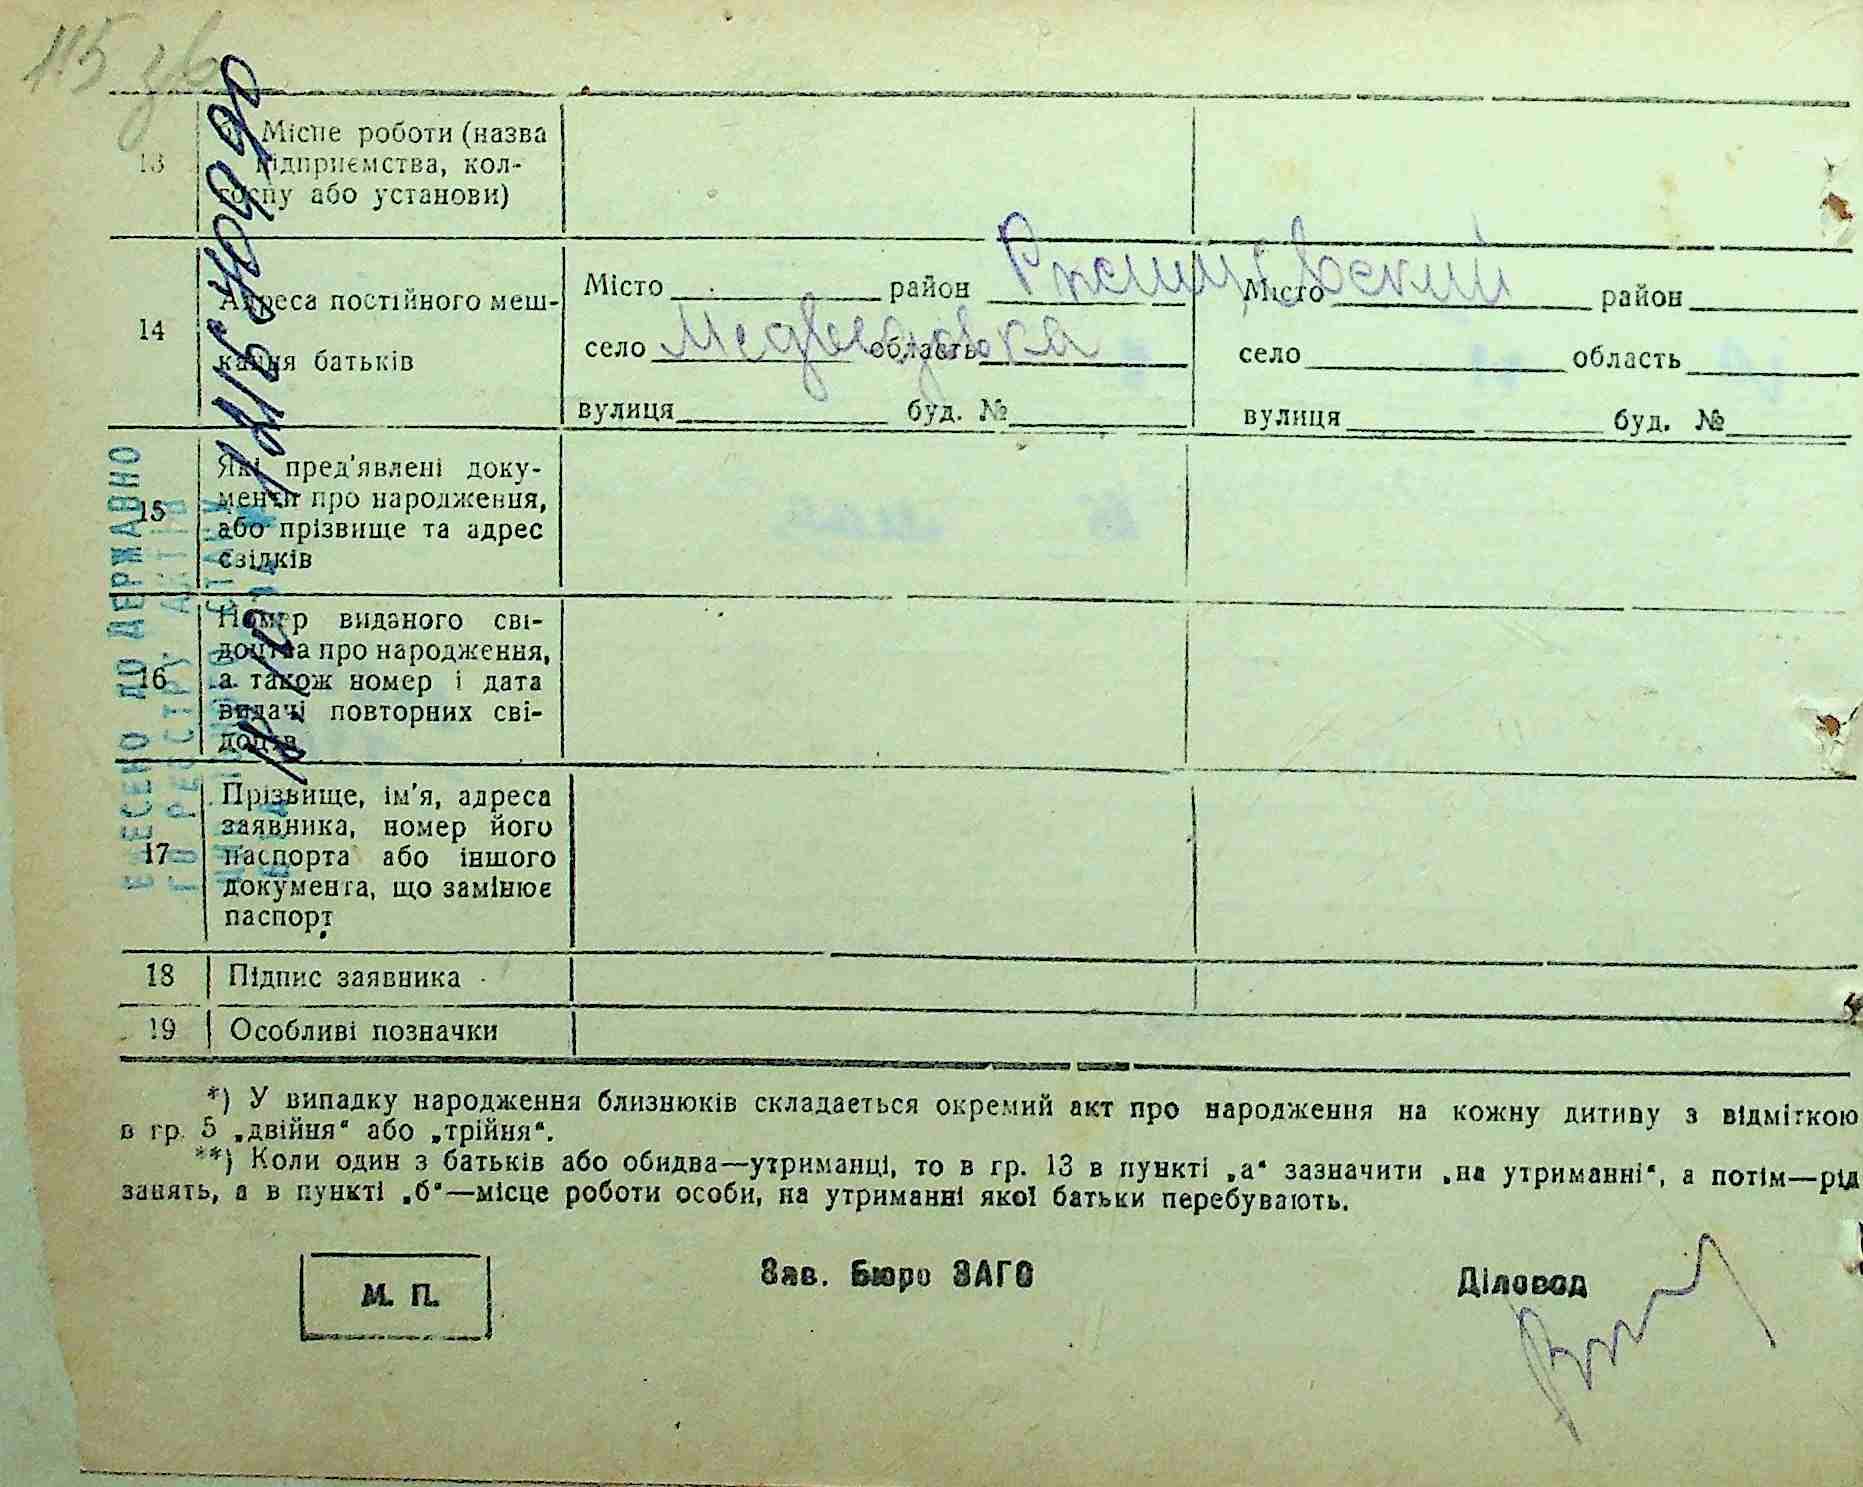 115 зв
13
Місце роботи (назва
підприємства, кол-
госпу або установи)
14
Адреса постійного меш-
кання батьків
Місто район Ржищівский
село Медведовка область
вулиця буд. №
Місто район
село область
вулиця буд. №
15
Які пред'явлені доку-
менти про народження,
або прізвище та адрес
свідків
16
Номер виданого сві-
доцтва про народження,
а також номер і дата
видачі повторних сві-
доцтв
17
Прізвище, ім'я, адреса
заявника, номер його
паспорта або іншого
документа, що замінює
паспорт
18 Підпис заявника
19 Особливі позначки
ВНЕСЕНО ДО ДЕРЖАВНО
ГО РЕЄСТРУ АКТІВ
ЦИВІЛЬНОГО СТАНУ
*) У випадку народження близнюків складається окремий акт про народження на кожну дитину з відміткою
в гр. 5 „двійня“ або „трійня“.
**) Коли один з батьків або обидва—утриманці, то в гр. 13 в пункті „а“ зазначити „на утриманні“, а потім—рід
занять, а в пункті „б“—місце роботи особи, на утриманні якої батьки перебувають.
М. П.
Зав. Бюро ЗАГС
Діловод